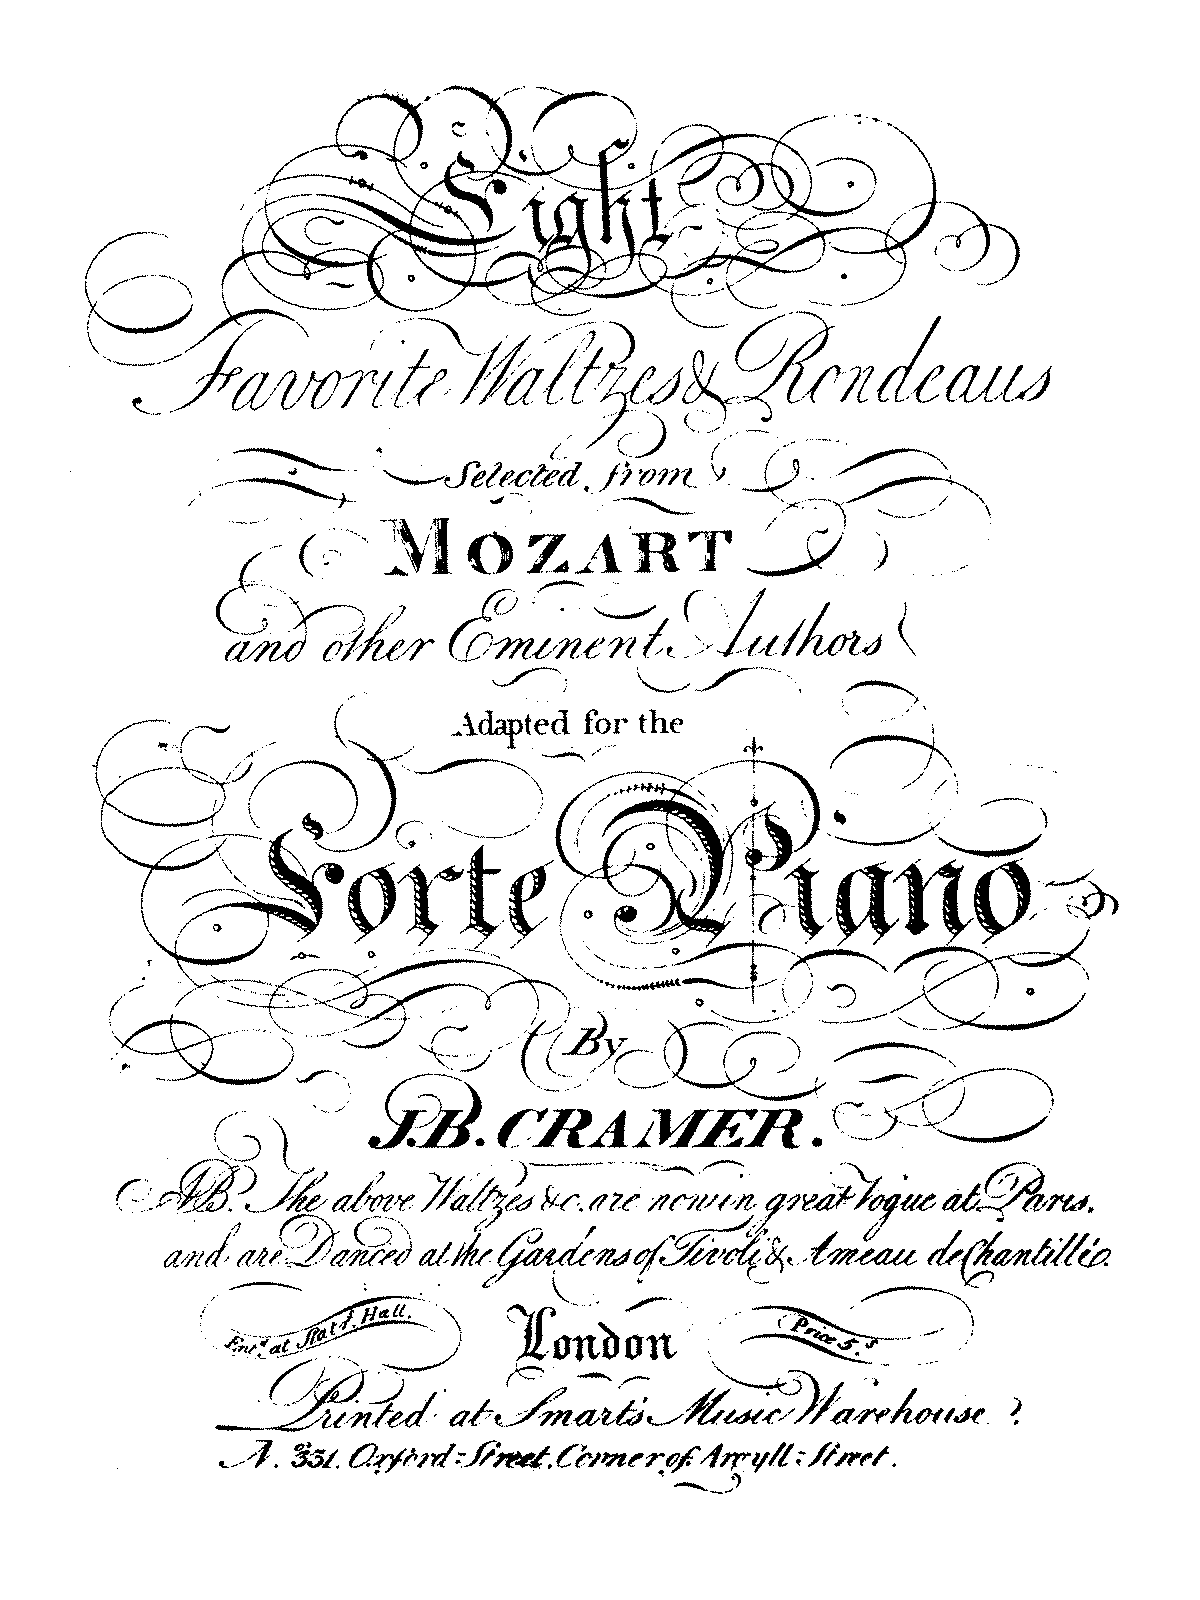 Eight
Favorite Waltzes & Rondeaus
Selected from
MOZART
and other Eminent Authors
Adapted for the
Forte Piano
By
J.B. CRAMER.
NB. The above Waltzes &c. are now in great Vogue at Paris.
and are Danced at the Gardens of Tivoli & Ameau de Chantillie.
Ent.d at Stat.s Hall. London Price 5.s
Printed at Smart's Music Warehouse
N.o 331. Oxford-Street, Corner of Argyll-Street.